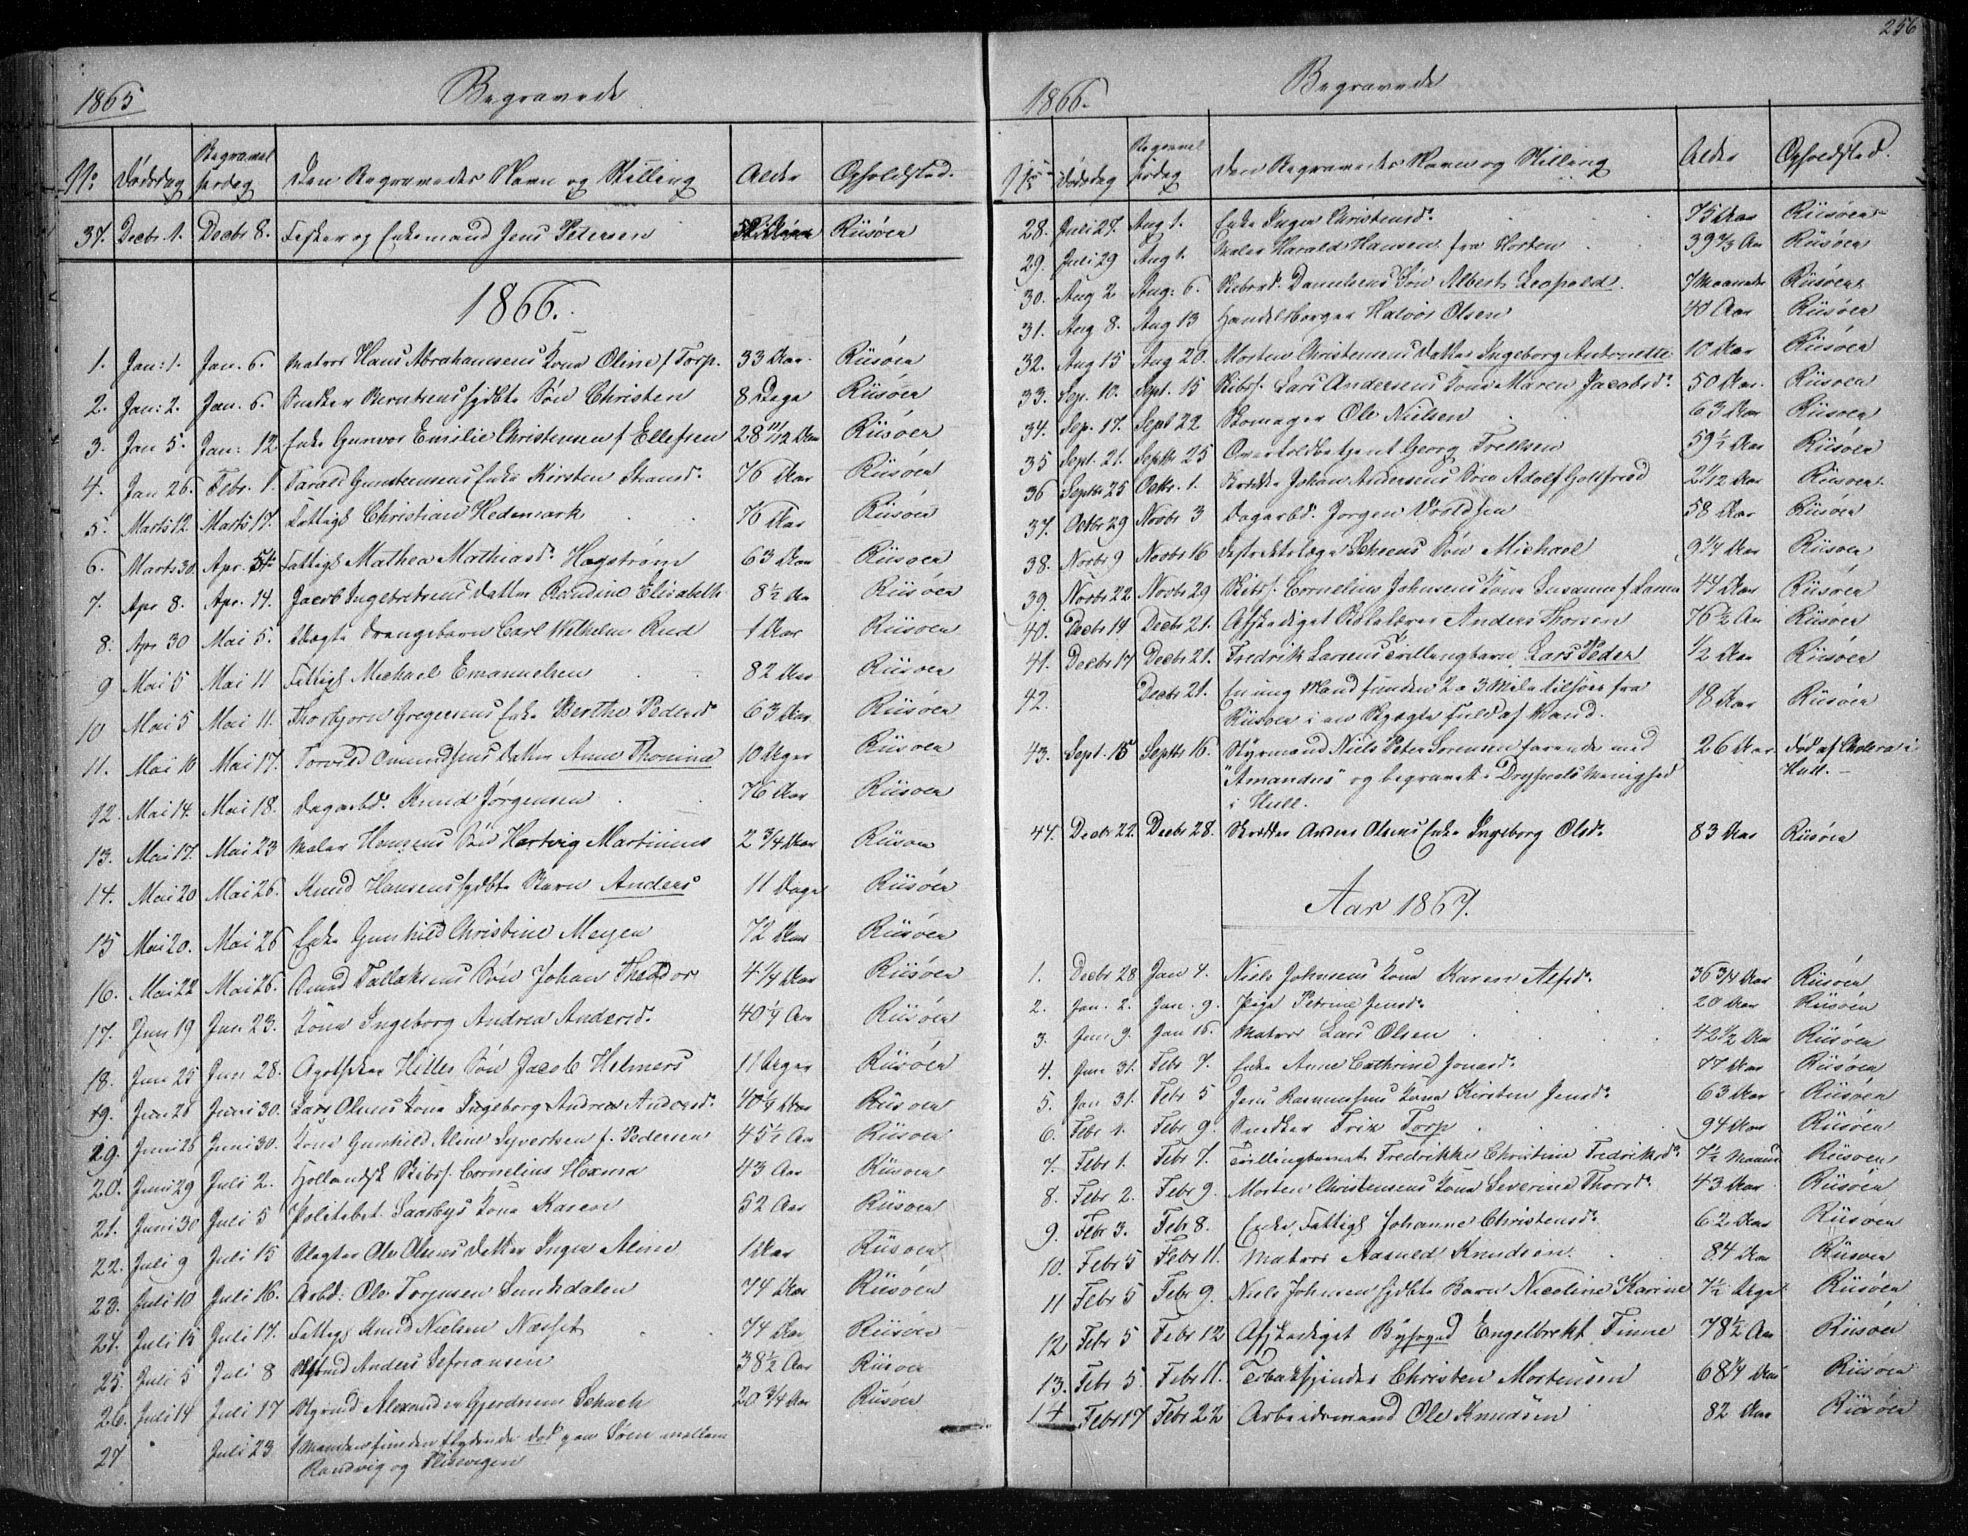 256
1865
Begravede
No Dødsdag Begravelsesdag Den Begravedes Navn og Stilling Alder Opholdsted.
37. Decbr 1. Decbr 8. Fisker og Enkemand Jens Petersen Riisøer
1866.
1. Jan: 1. Jan. 6. Matros Hans Abrahamsens Kone Oline f. Torp. 33 Aar. Riisøer
2. Jan: 2. Jan. 6. Snedker Berntsens hjdbte Søn Christen 8 Dage Riisøer
3. Jan 5. Jan: 12 Enke Gunvor Emilie Christensen f Ellefsen 28 11/12 Aar Riisøer
4. Jan 26. Febr. 1. Tarald Gunstensens Enke Kirsten 76 Aar Riisøer
5. Marts 12. Marts 17. Fattigl Christian Hedemark 76 Aar Riisøer
6. Marts 30. Apr. 5te Fattigl Mathea Mathiasd. Hagstrøm 63 Aar Riisøer
7. Apr 8. Apr. 14. Jacob Ingebretsens Datter Randine Elisabeth 8 1/2 Aar Riisøer
8. Apr 30 Mai 5. Uægte Drengebarn Carl Wilhelm Rud 1 Aar Riisøer
9 Mai 5 Mai 11 Fattigl Michael Emanuelsen 82 Aar Riisøer
10 Mai 5 Mai 11. Thorbjørn Gregersens Enke Berthe Pedersd 63 Aar Riisøer
11. Mai 10 Mai 17. Torvild Amundsens Datter Anne Thomine 10 Uger Riisøer
12. Mai 14. Mai 18. Dagarbd. Knud Jørgensen 76 Aar Riisøer
13. Mai 17. Mai 23 Maler Hansens Søn Hartvig Martinius 2 3/4 Aar Riisøer
14. Mai 20 Mai 26. Knud Hansens hjdbte Barn Anders 11 Dage Riisøer
15 Mai 20. Mai 26 Enke Gunhild Christine Meyer 72 Aar Riisøer
16. Mai 22 Mai 26. Amund Tallaksens Søn Johan Theodor 4 1/4 Aar Riisøer
17. Juni 19 Jun. 23. Kone Ingeborg Andrea Andersd. 40 1/4 Aar Riisøer
18. Juni 25 Juni 28. Apotheker Hilles Søn Jacob Helmers 11 Uger Riisøer
19. Juni 26 Juni 30. Lars Olsens Kone Ingeborg Andrea Andersd. 40 1/4 Aar Riisøer
29. Juni 26 Juni 30. Kone Gunhild Aline Syvertsen f. Pedersen 45 1/2 Aar Riisøer
20. Juni 29 Juli 2. Hollandsk Skibsf. Cornelius Hoxma 43 Aar Riisøer
21. Juni 30 Juli 5 Politibet. Saarbys Kone Karen 52 Aar Riisøer
22. Juli 9 Juli 15 Slagter Ole Olsens Datter Inger Aline 1 Aar Riisøer
23. Juli 10 Juli 16. Arbd: Ole Torjusen Sundsdalen 74 Aar Riisøer
24. Juli 15 Juli 17. Fattigl Knud Nielsen Næsset 74 Aar Riisøer
25. Juli 5 Juli 8 Anders Sefraansen 38 1/2 Aar Riisøer
26. Juli 14 Juli 17 Styrmd Alexander Gjerdrum Schach 20 3/4 Aar Riisøer
27 " Juli 23 1 Mandens funden flydende død paa Søen mellem
Randvig og
1866.
Begravede
No Dødsdag Begravelsesdag Den Begravedes Navn og Stilling Alder Opholdsted.
28. Juli 27. Aug 1. Enke Inger Christensd. 75 Aar Riisøer
29. Juli 29 Aug 1. Maler Harald Hansen fra Horten 39 2/3 Aar Riisøer
30. Aug 2 Aug: 6. Danielsens Søn Albert Leopold 7 Maaneder Riisøer
31. Aug 8. Aug 13 Handelsborger Halvor Olsen 40 Aar Riisøer
32. Aug 15 Aug 20. Morten Christensens Datter Ingeborg Antonette 10 Aar Riisøer
33. Sep. 10. Sept. 15 Skibsf. Lars Andersens Kone Maren Jacobsd. 50 Aar. Riisøer
34. Sep. 17. Sept 22 Skomager Ole Nielsen 63 Aar Riisøer
35 Sept. 21. Septbr 25 Overtoldbetjent Georg Trellsen 59 1/2 Aar Riisøer
36 Septbr 25 Octbr. 1. Johan Andersens Søn Adolf Gottfried 2 1/12 Aar Riisøer
37. Octbr 29 Novbr 3 Dagarbd. Jørgen 58 Aar Riisøer
38. Novbr 9 Novbr 16 Distriktslæge Scheens Søn Michael 9 1/4 Aar Riisøer
39. Novbr 22. Novbr 29 Skibsf. Cornelius Johnsens Kone Susanne f. 44 Aar Riisøer
40. Decbr 14 Decbr 21. Afskediget Anders Thorsen 76 1/2 Aar Riisøer
41. Decbr 17 Decbr 21. Fredrik Larsens Tvillingbarn Lars Peder 1/2 Aar Riisøer
42. Decbr 21. En ung Mand funden 2 a 3 Mile tilsøes fra
Riisøer i en Skjøgte fuld af Vand. 18 Aar Riisøer
43. Sept. 15 Septbr 16. Styrmand Niels Peter Sørensen farende med 26 Aar Død af Cholera i
"Amandus" og begravet i Drypools Menighed Hull.
i Hull.
44. Decbr 22. Decbr 28. Skrædder Anders Olsens Enke Ingeborg Olsd. 83 Aar Riisøer
Aar 1867.
1. Decbr 28 Jan 4. Niels Johnsens Kone Karen Alfsd. 36 3/4 Aar Riisøer
2. Jan. 2. Jan. 9. Pige Petrine Jensd. 20 Aar Riisøer
3. Jan 9. Jan 15. Matros Lars Olsen 42 1/2 Aar Riisøer
4. Jan 31. Febr 7. Enke Anne Cathrine Jonasd. 77 Aar Riisøer
5. Jan 31. Febr 5 Jens Rasmussens Kone Kirsten Jensd. 63 Aar Riisøer
6. Febr 1. Febr 9. Snedker Friz Torp 94 Aar Riisøer
7. Febr 1. Febr 7. Tvillingbarnet Fredrikke Christine Fredriksd. 7 1/2 Maaned Riisøer
8. Febr 2. Febr 9. Morten Christensens Kone Severine Thorsd. 43 Aar Riisøer
9. Febr 3. Febr 8. Enke, Fattigl Johanne Christensd. 62 Aar Riisøer
10. Febr 5 Febr 11. Matros Aasuld Knudsen 84 Aar Riisøer
11 Febr 5 Febr 9. Niels Johnsens hjdbte Barn Nicoline Karine 7 1/2 Uge Riisøer
12 Febr 5 Febr 12 Afskediget Byfoged Engelbrekt Finne 78 1/2 Aar Riisøer
13. Febr 5. Febr 11. Tobakspinder Christen Mortensen 68 1/4 Aar Riisøer
14 Febr 17 Febr 22 Arbeidsmand Ole Knudsen 82 Aar Riisøer